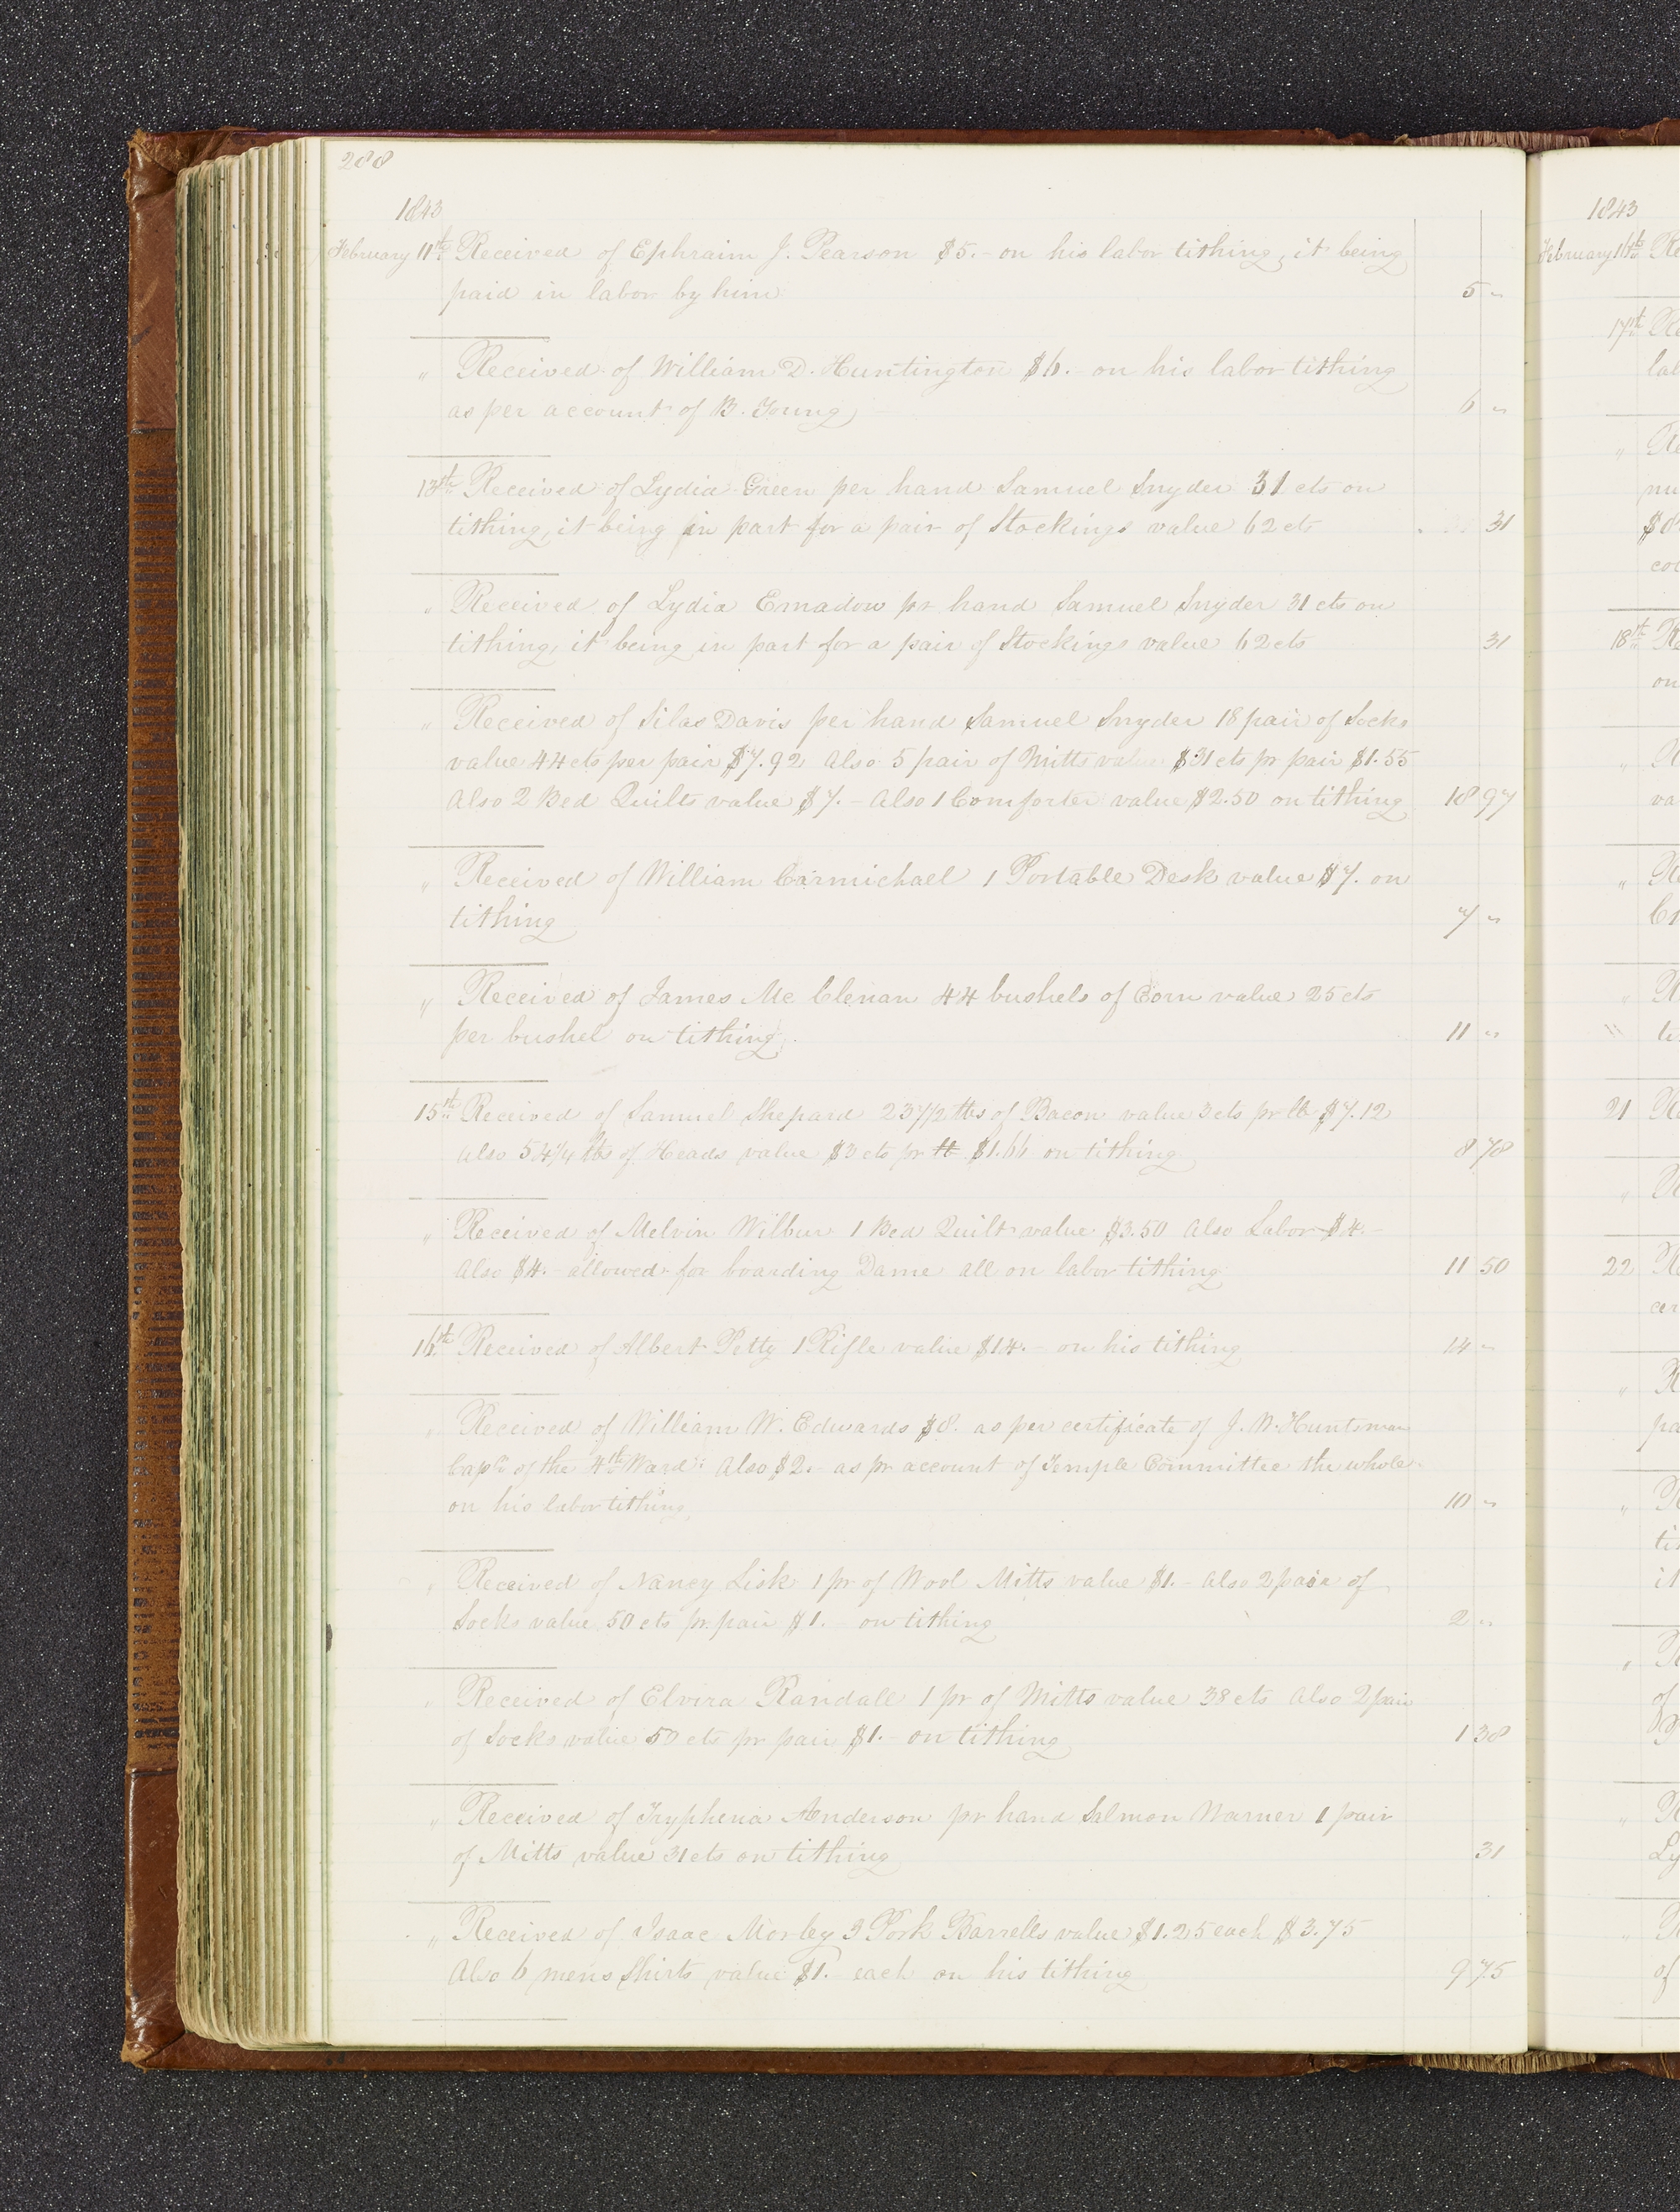 288
1843
February 11th Received of Ephraim J. Pearson $5.- on his labor tithing, it being
paid in labor by him 5 "
" Received of William D. Huntington $6.- on his labor tithing
as per account of B. Young 6 "
13th Received of Lydia Green per hand Samuel Snyder 31 cts on
tithing, it being in part for a pair of Stockings value 62 cts 31
" Received of Lydia Emadow pr hand Samuel Snyder 31 cts on
tithing, it being in part for a pair of Stockings value 62 cts 31
" Received of Silas Davis per hand Samuel Snyder 18 pair of Socks
value 44 cts per pair $7.92 Also 5 pair of Mitts value $31 cts pr pair $1.55
Also 2 Bed Quilts value $7.- Also 1 Comforter value $2.50 on tithing 18 97
" Received of William Carmichael 1 Portable Desk value $7. on
tithing 7 "
" Received of James Mc Clenan 44 bushels of Corn value 25 cts
per bushel on tithing. 11 "
15th Received of Samuel Shepard 237 1/2 lbs of Bacon value 3 cts pr lb $7.12
Also 54 1/4 lbs of Heads value $3 cts pr lb $1.66 on tithing 8 78
" Received of Melvin Wilbur 1 Bed Quilt value $3.50 Also Labor $4.-
Also $4.- allowed for boarding Dame all on labor tithing 11 50
16th Received of Albert Petty 1 Rifle value $14.- on his tithing 14 "
" Received of William W. Edwards $8. as per certificate of J. W. Huntsman
Capn of the 4th Ward: Also $2.- as pr account of Temple Committee the whole
on his labor tithing 10 "
" Received of Nancy Lisk 1 pr of Wool Mitts value $1.- Also 2 pair of
Socks value 50 cts pr. pair $1. - on tithing 2 "
" Received of Elvira Randall 1 pr of Mitts value 38 cts Also 2 pair
of Socks value 50 cts pr pair $1.- on tithing 1 38
" Received of Tryphena Anderson pr hand Salmon Warner 1 pair
of Mitts value 31 cts on tithing 31
" Received of Isaac Morley 3 Pork Barrells value $1.25 each $3.75
Also 6 mens Shirts value $1.- each on his tithing 9 75
1843
February 16th
17th
"
$
18th
on
"
va
"
"
"
21
"
22
"
"
"
of
"
Ly
"
of